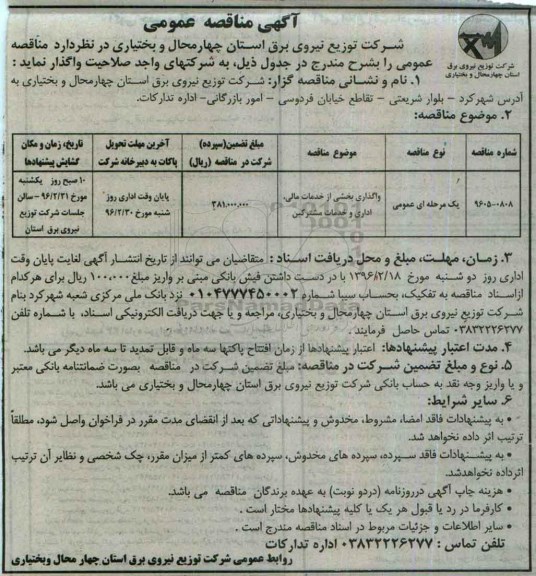 آگهی مناقصه عمومی
شرکت توزیع نیروی برق
استان چهارمحال و بختیاری
شرکت توزیع نیروی برق استان چهارمحال و بختیاری در نظردارد مناقصه
عمومی را بشرح مندرج در جدول ذیل، به شرکتهای واجد صلاحیت واگذار نماید :
۱. نام و نشانی مناقصه گزار: شرکت توزیع نیروی برق استان چهارمحال و بختیاری به
آدرس شهرکرد - بلوار شریعتی - تقاطع خیابان فردوسی - امور بازرگانی- اداره تدارکات.
۲. موضوع مناقصه:
شماره مناقصه | نوع مناقصه | موضوع مناقصه | مبلغ تضمین(سپرده) شرکت در مناقصه (ریال) | آخرین مهلت تحویل پاکات به دبیرخانه شرکت | تاریخ، زمان و مکان گشایش پیشنهادها
۹۶۰۵۰۰۸۰۸ | یک مرحله ای عمومی | واگذاری بخشی از خدمات مالی، اداری و خدمات مشترکین | ۳۸۱.۰۰۰.۰۰۰ | پایان وقت اداری روز شنبه مورخ ۹۶/۲/۳۰ | ۱۰ صبح روز یکشنبه مورخ ۹۶/۲/۳۱ - سالن جلسات شرکت توزیع نیروی برق استان
۳. زمان، مهلت، مبلغ و محل دریافت اسناد : متقاضیان می توانند از تاریخ انتشار آگهی لغایت پایان وقت
اداری روز دو شنبه مورخ ۱۳۹۶/۲/۱۸ با در دست داشتن فیش بانکی مبنی بر واریز مبلغ ۱۰۰.۰۰۰ ریال برای هرکدام
ازاسناد مناقصه به تفکیک، بحساب سیبا شماره ۰۱۰۴۷۷۷۴۵۰۰۰۲ نزد بانک ملی مرکزی شعبه شهرکرد بنام
شرکت توزیع نیروی برق استان چهارمحال و بختیاری، مراجعه و یا جهت دریافت الکترونیکی اسناد، با شماره تلفن
۰۳۸۳۲۲۲۶۲۷۷ تماس حاصل فرمایند .
۴. مدت اعتبار پیشنهادها: اعتبار پیشنهادها از زمان افتتاح پاکتها سه ماه و قابل تمدید تا سه ماه دیگر می باشد.
۵. نوع و مبلغ تضمین شرکت در مناقصه: مبلغ تضمین شرکت در مناقصه بصورت ضمانتنامه بانکی معتبر
و یا واریز وجه نقد به حساب بانکی شرکت توزیع نیروی برق استان چهارمحال و بختیاری می باشد.
۶. سایر شرایط:
• به پیشنهادات فاقد امضا، مشروط، مخدوش و پیشنهاداتی که بعد از انقضای مدت مقرر در فراخوان واصل شود، مطلقاً
ترتیب اثر داده نخواهد شد.
• به پیشنهادات فاقد سپرده، سپرده های مخدوش، سپرده های کمتر از میزان مقرر، چک شخصی و نظایر آن ترتیب
اثرداده نخواهدشد.
• هزینه چاپ آگهی درروزنامه (دردو نوبت) به عهده برندگان مناقصه می باشد.
• کارفرما در رد یا قبول هر یک یا کلیه پیشنهادها مختار است .
• سایر اطلاعات و جزئیات مربوط در اسناد مناقصه مندرج است .
تلفن تماس : ۰۳۸۳۲۲۲۶۲۷۷ اداره تدارکات
روابط عمومی شرکت توزیع نیروی برق استان چهار محال وبختیاری